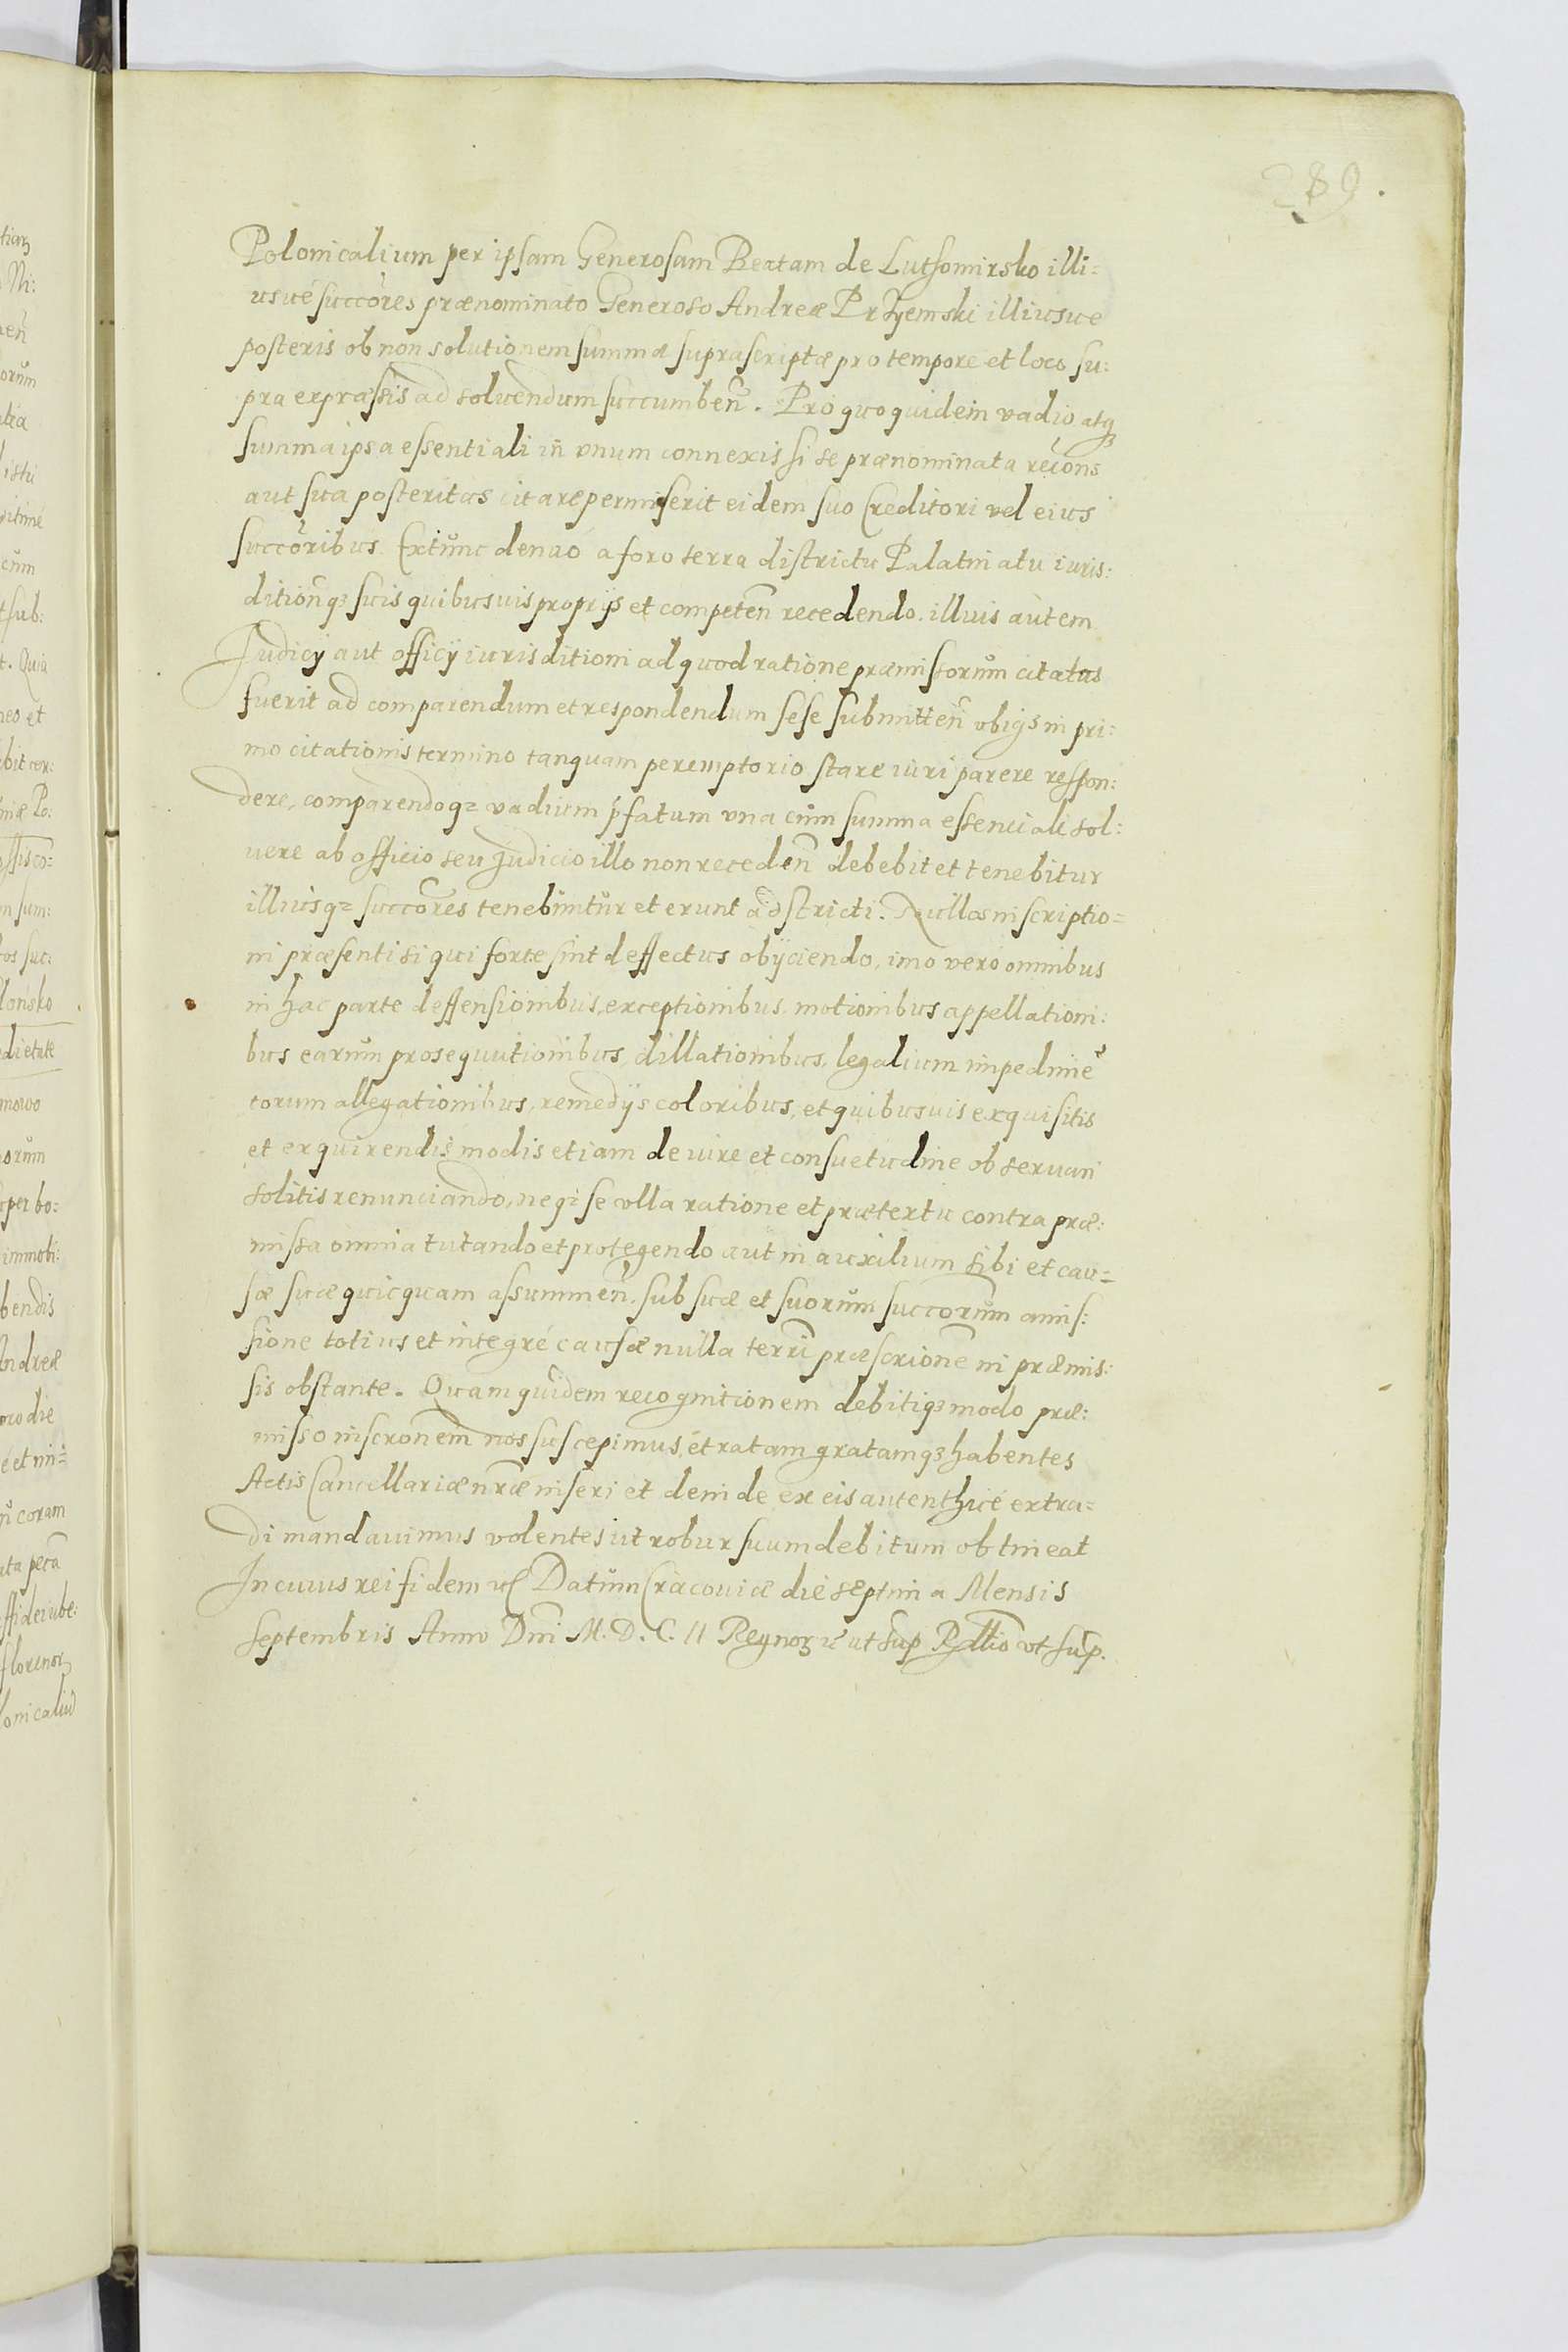 289.
Polonicalium per ipsam Generosam Beatam de Luthomirsko illi=
usué succõres prænominato Generoso Andreæ Przyemski illiusue
posteris ob non solutionem summæ suprascriptæ pro tempore et loco su:
pra expræssis ad soluendum succumbeñ. Pro quo quidem vadio atq3
summa ipsa essentiali iñ vnum connexis si se prænominata recõns
aut sua posteritas citare permiserit eidem suo Creditori vel eius
succõribus. Extunc denuó a foro terra districtu Palatinatu iuris:
ditioñq3 suis quibusuis proprijs et competeñ recedendo. illuis autem
Judicij aut officij iurisditioni ad quod ratione præmissorum citatus
fuerit ad comparendum et respondendum sese submitteñ vbiq3 in pri:
mo citationis termino tanquam peremptorio stare iuri parere respon:
dere, comparendoq3 vadium p̃fatum vna cum summa essenciali sol:
uere ab officio seu Judicio illo non recedeñ debebit et tenebitur
illiusq3 succõres tenebuntur et erunt adstricti. Nullos inscriptio=
ni præsenti si qui forte sint deffectus obijciendo, imo vero omnibus
in hac parte deffensionibus, exceptionibus, motionibus appellationi:
bus earum prosequutionibus, dillationibus, legalium impedimẽ
torum allegationibus, remedijs coloribus, et quibusuis exquisitis
et exquirendis modis etiam de iure et consuetudine obseruari
solitis renunciando, neq3 se vlla ratione et prætextu contra præ:
missa omnia tutando et protegendo aut in auxilium sibi et cau=
sæ suæ quicquam assummeñ. sub suæ et suorum succorum amis:
sione totius et integré causæ nulla terrĩ præscrione in præmis:
sis obstante. Quam quidem recognitionem debitiq3 modo præ:
misso inscronem nos suscepimus, et ratam gratamq3 habentes
Actis Cancellariæ nr̃æ inseri et deinde ex eis autenthicé extra=
di mandauimus volentes ut robur suum debitum obtineat
In cuius rei fidem &c Datum Cracouiæ die septima Mensis
Septembris Anno Dñi M. D. C. II Regnor3 &c ut sup R̃llio vt sup.